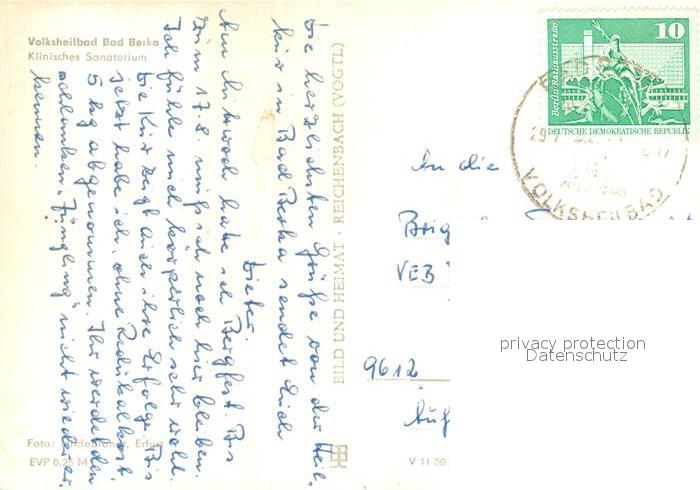 Volksheilbad Bad Berka
Klinisches Sanatorium
Die herzlichsten Grüße von der Heil-
kur in Bad Berka sendet Euch
Dieter.
Am Mittwoch habe ich Bergfest. Bis
zum 17.8. muß ich noch hier bleiben.
Ich fühle mich körperlich sehr wohl.
Die Kur zeigt auch ihre Erfolge. Bis
jetzt habe ich, ohne Radikalkost,
5 kg abgenommen. Ihr werdet den
schlanken „Jüngling" nicht wieder er-
kennen.
Foto: Hildebrandt, Erfurt
EVP 0,25 M
BILD UND HEIMAT · REICHENBACH (VOGTL)
V 11 50
10
Berlin, Rathausstraße
DEUTSCHE DEMOKRATISCHE REPUBLIK
VOLKSHEILBAD
An die
Brig
VEB
9612
privacy protection
Datenschutz